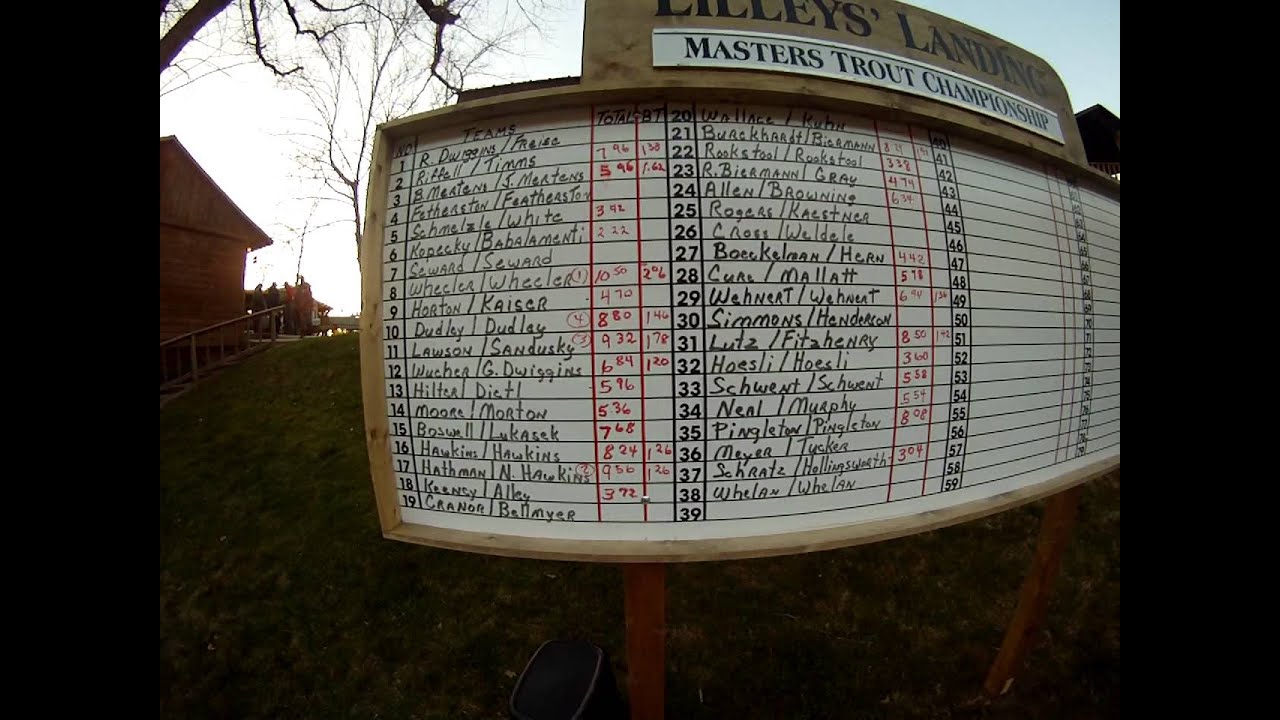 LILLEYS' LANDING
MASTERS TROUT CHAMPIONSHIP
NO TEAMS TOTALS BT
1 R. Dwiggins / Freise 7 96 1 38
2 Riffell / Timms 5 96 1.62
3 B. Mertens / J. Mertens
4 Fetherston / Featherston 3 42
5 Schmelzle / White 2 22
6 Kopecky / Babalamenti
7 Seward / Seward
8 Wheeler / Wheeler (1) 10 50 2 06
9 Horton / Kaiser 4 70
10 Dudley / Dudley (4) 8 80 1 46
11 Lawson / Sandusky (3) 9 32 1 78
12 Wucher / G. Dwiggins 6 84 1 20
13 Hilter / Dietl 5 96
14 Moore / Morton 5.36
15 Boswell / Lukasek 7 68
16 Hawkins / Hawkins 8 24 1 26
17 Hathman / N. Hawkins (2) 9 56 1 26
18 Keency / Alley 3 72
19 Cranor / Bellmyer
20 Wallace / Kuhn
21 Burckhardt / Biermann
22 Rookstool / Rookstool 3 38
23 R. Biermann / Gray 4 74
24 Allen / Browning 6 34
25 Rogers / Kaestner
26 Cross / Weldele
27 Boeckelman / Hern 4 42
28 Cure / Mallatt 5 78
29 Wehnert / Wehnert 6 94 1 36
30 Simmons / Henderson
31 Lutz / Fitzhenry 8 50 1 42
32 Hoesli / Hoesli 3 60
33 Schwent / Schwent 5 58
34 Neal / Murphy 5 54
35 Pingleton / Pingleton 8 08
36 Meyer / Tucker
37 Schratz / Hollingsworth 3 04
38 Whelan / Whelan
39
40
41
42
43
44
45
46
47
48
49
50
51
52
53
54
55
56
57
58
59